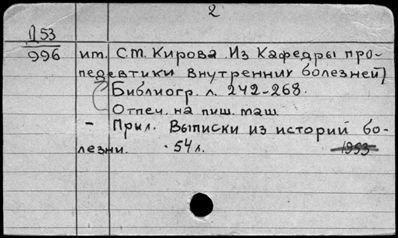 2
Д53
996 им. С.М. Кирова. Из Кафедры про-
педевтики внутренних болезней)
Библиогр. л. 242-268.
Отпеч. на пиш. маш.
- Прил. Выписки из историй бо-
лезни. · 54 л. 1953